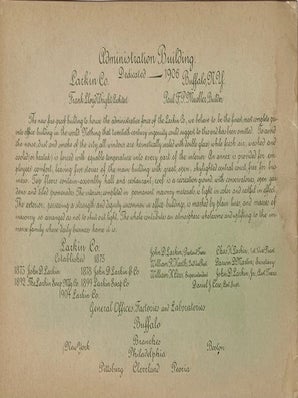 Administration Building
Larkin Co. Dedicated — 1906 Buffalo, N.Y.
Frank Lloyd Wright, Architect Paul F.P. Mueller, Builder
The new fire-proof building to house the administrative force of the Larkin Co., we believe to be the finest, most complete pri-
vate office building in the world. Nothing that twentieth century ingenuity could suggest to this end has been omitted. To avoid
the noise, dust and smoke of the city, all windows are hermetically sealed with double glass while fresh air, washed and
cooled (or heated) is forced with equable temperature into every part of the interior. An annex is provided for em-
ployees' comfort, leaving five stories of the main building with great, open, skylighted central court, free for bus-
iness. Top floors contain assembly hall and restaurant; roof is a recreation ground with conservatories, open gar-
dens and tiled promenade. The interior, completed in permanent masonry materials, is light in color and restful in effect.
The exterior, expressing a strength and dignity uncommon in office buildings, is marked by plain lines, and masses of
masonry so arranged as not to shut out light. The whole contributes an atmosphere wholesome and uplifting to the im-
mense family whose daily bread-winner home it is.
Larkin Co.
Established 1875
1875 John D. Larkin 1878 John D. Larkin & Co.
1892 The Larkin Soap Mfg. Co. 1899 Larkin Soap Co.
1904 Larkin Co.
John D. Larkin, President-Treas. Chas. H. Larkin, 1st Vice-Prest.
William R. Heath, 2nd Vice-Prest. Darwin D. Martin, Secretary
William H. Coss, Superintendent John D. Larkin, Jr., Asst. Treas.
Daniel J. Coss, Asst. Supt.
General Offices, Factories and Laboratories
Buffalo
Branches
New York Philadelphia Boston
Pittsburg Cleveland Peoria